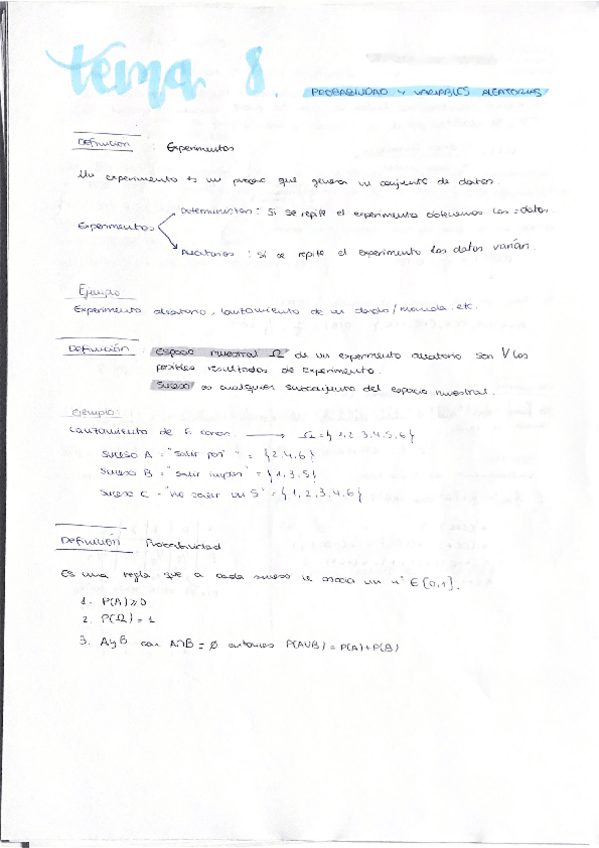 tema 8.
PROBABILIDAD Y VARIABLES ALEATORIAS
Definición : Experimentos
Un experimento es un proceso que genera un conjunto de datos.
Experimentos
Deterministas : Si se repite el experimento obtenemos los = datos.
Aleatorios : si se repite el experimento los datos varían.
Ejemplo:
Experimento aleatorio, lanzamiento de un dados/moneda, etc.
Definición : espacio muestral Ω de un experimento aleatorio son ∀ los
posibles resultados de experimento.
Suceso es cualquier subconjunto del espacio muestral.
Ejemplo:
Lanzamiento de 6 caras. → Ω = { 1, 2, 3, 4, 5, 6 }
Suceso A = "Salir par" = { 2, 4, 6 }
Suceso B = "Salir impar" = { 1, 3, 5 }
Suceso C = "no salir un 5" = { 1, 2, 3, 4, 6 }
Definición Probabilidad
Es una regla que a cada suceso le asocia un nº ∈ [0,1].
1. P(A) ≥ 0
2. P(Ω) = 1
3. A y B con A∩B = ∅ entonces P(A∪B) = P(A) + P(B)